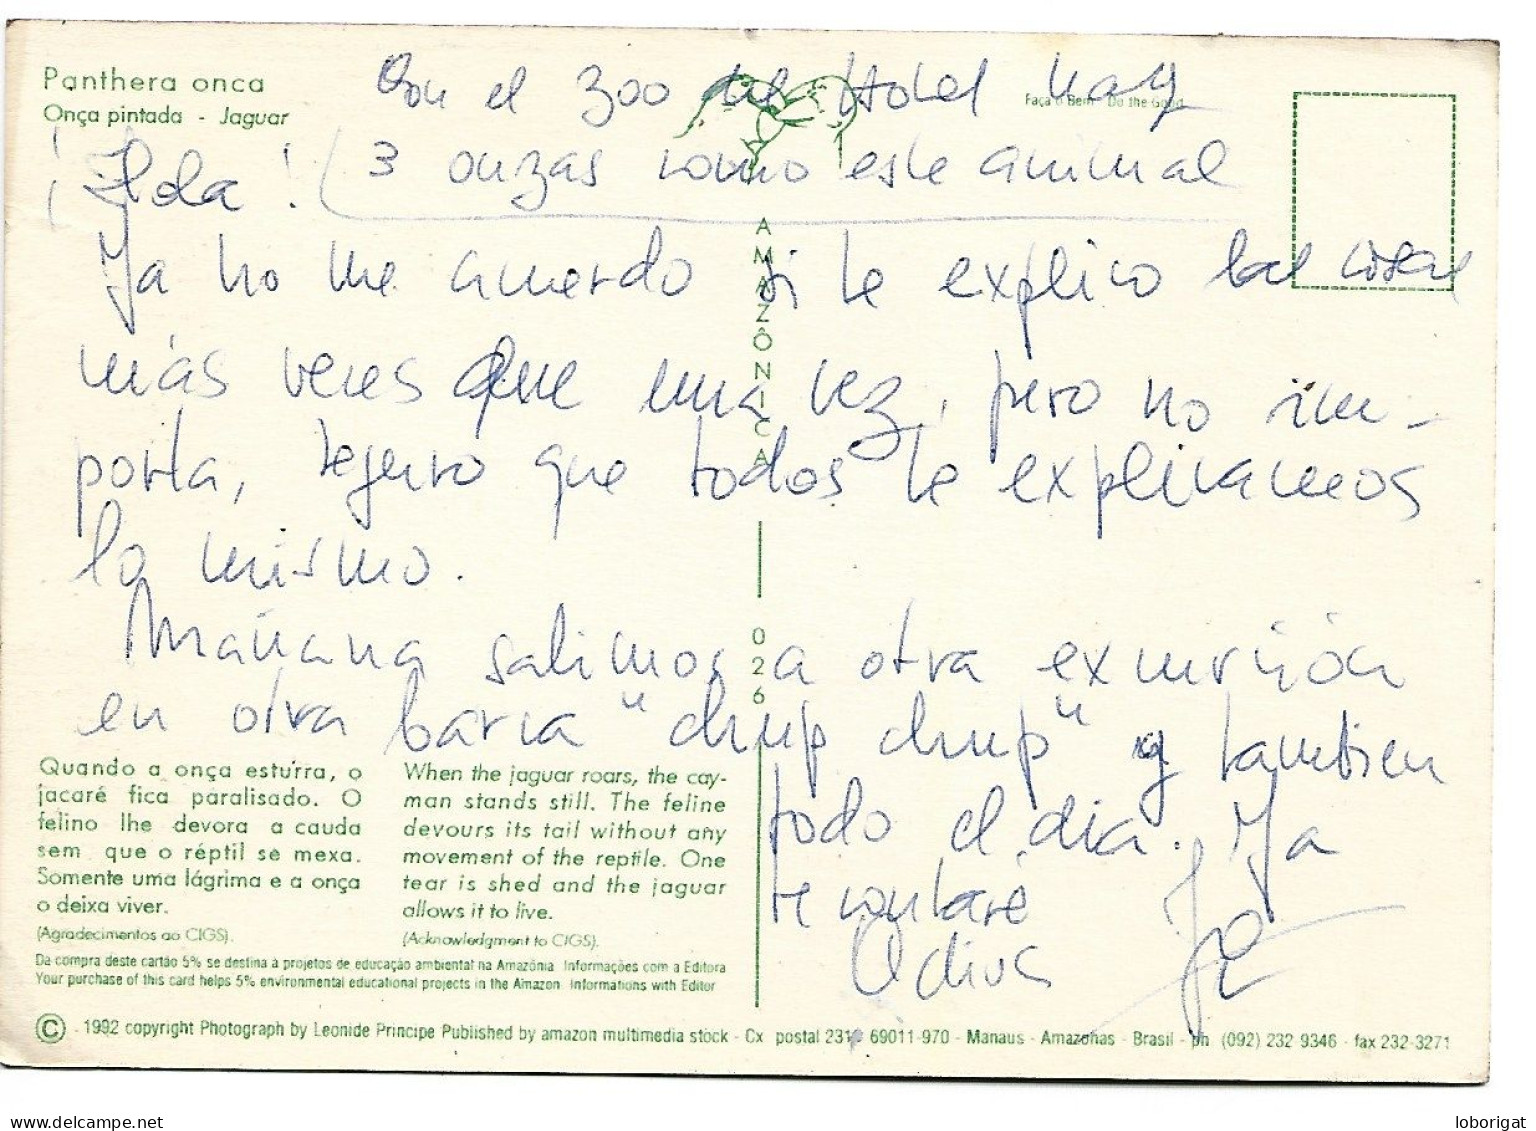 Panthera onca
Onça pintada - Jaguar
Faça o Bem - Do the Good
en el zoo del Hotel hay
3 onzas como este animal
¡Hola!
Ya no me acuerdo si te explico las cosas
más veces que una vez, pero no im-
porta, seguro que todos te explicamos
lo mismo.
Mañana salimos a otra excursión
en otra barca "chup chup" y tambien
todo el dia. Ya
te contaré
Adios
AMAZÔNICA
026
Quando a onça esturra, o
jacaré fica paralisado. O
felino lhe devora a cauda
sem que o réptil se mexa.
Somente uma lágrima e a onça
o deixa viver.
(Agradecimentos ao CIGS).
When the jaguar roars, the cay-
man stands still. The feline
devours its tail without any
movement of the reptile. One
tear is shed and the jaguar
allows it to live.
(Acknowledgment to CIGS).
Da compra deste cartão 5% se destina à projetos de educação ambiental na Amazônia Informações com a Editora
Your purchase of this card helps 5% environmental educational projects in the Amazon Informations with Editor
© - 1992 copyright Photograph by Leonide Principe Published by amazon multimedia stock - Cx postal 231 69011-970 - Manaus - Amazonas - Brasil - ph (092) 232 9346 - fax 232-3271
loborigat